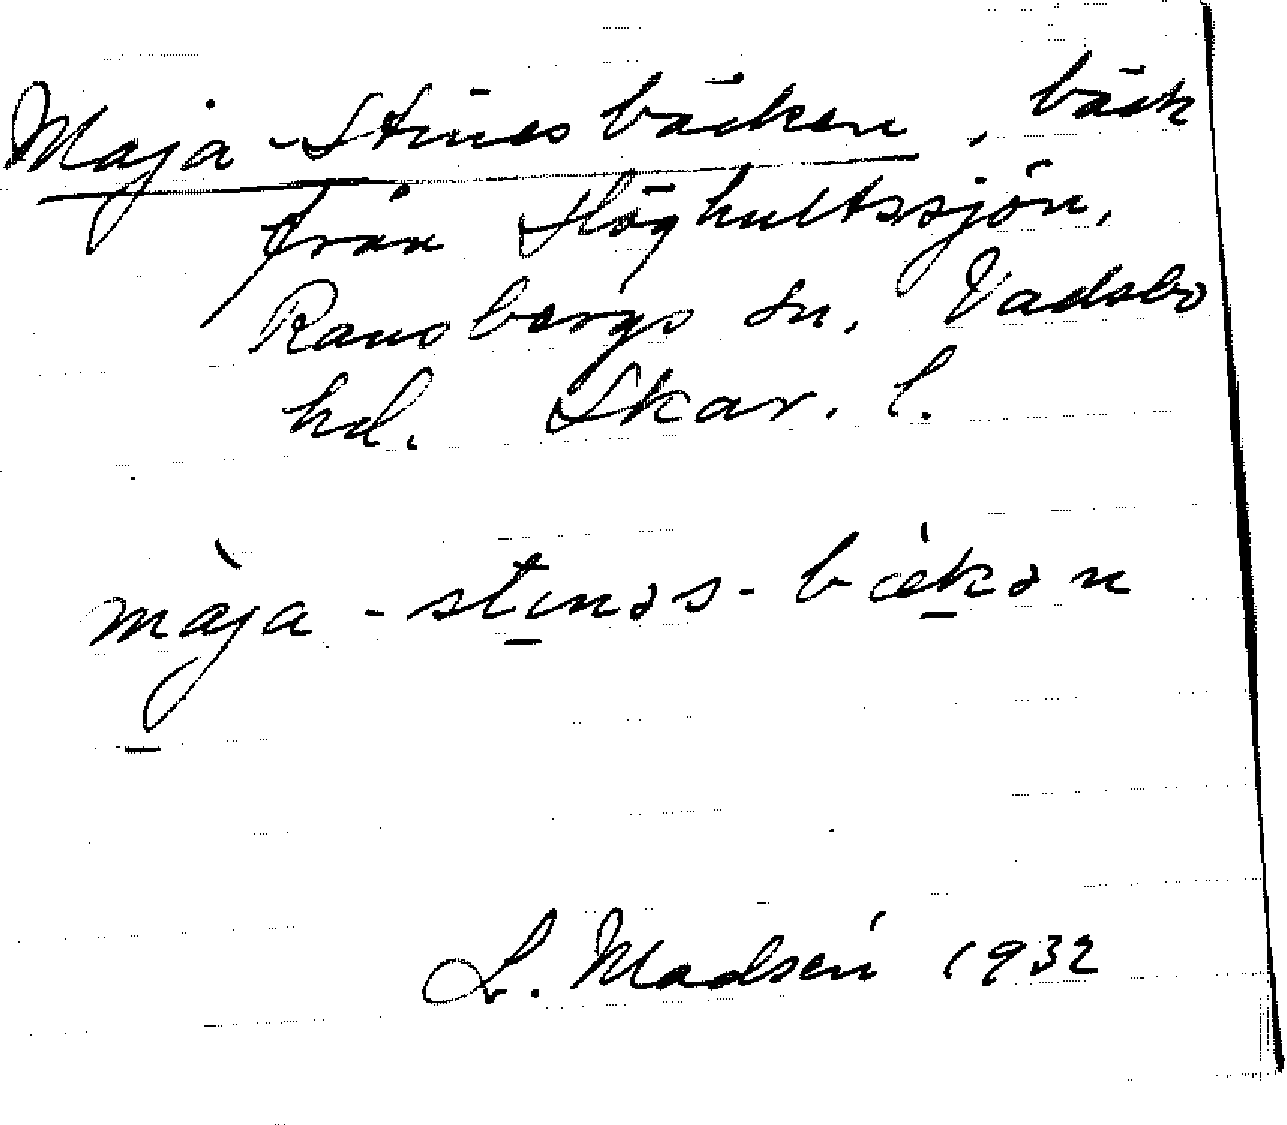 Maja-Stinesbäcken, bäck
från Höghultssjön,
Ransbergs sn, Vadsbo
hd. Skar. l.
màja - stinəs - bækən
L. Madsén 1932